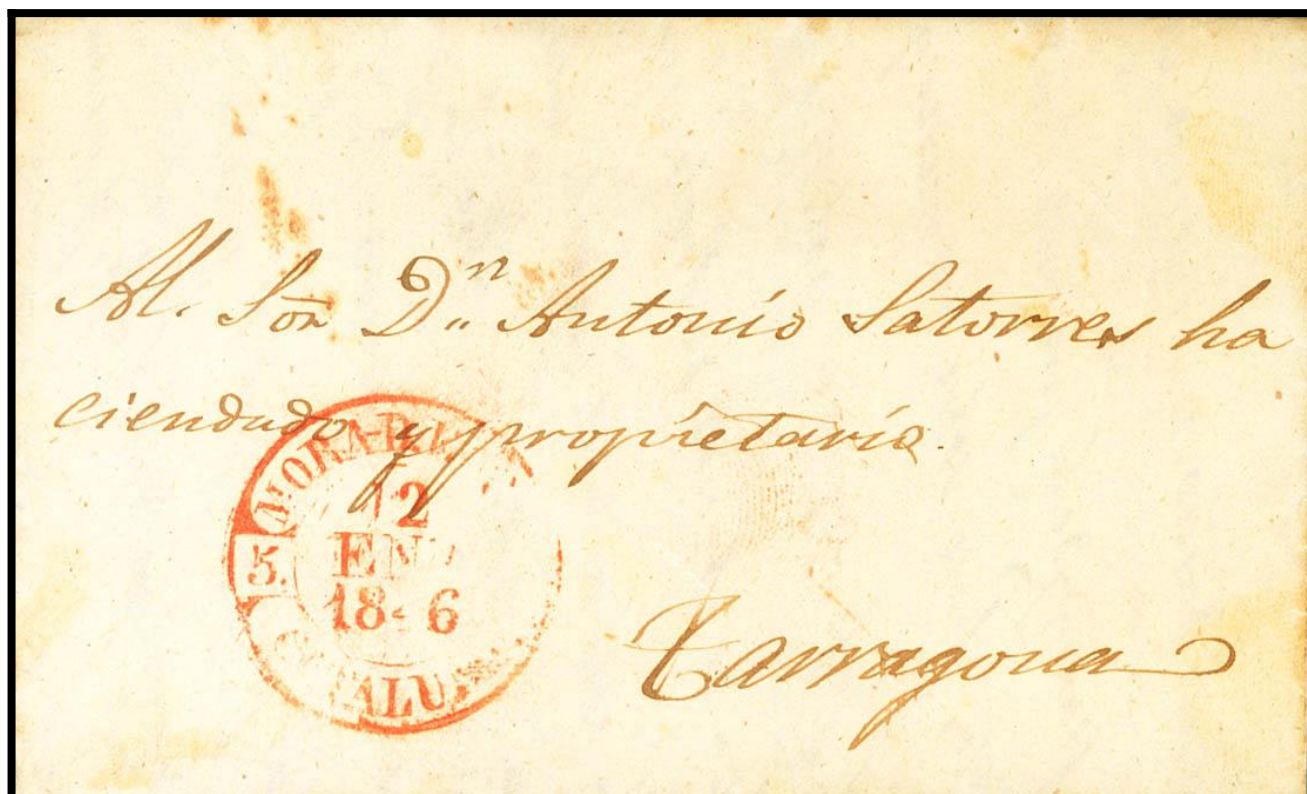 Al. Sōr Dⁿ Antonio Satorres ha
ciendado y propietario.
12
5.
18 6
Tarragona